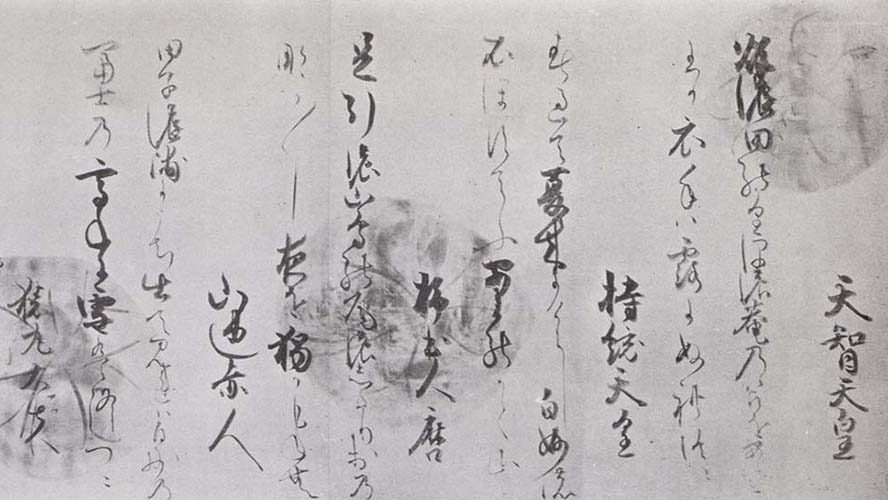 天智天皇
秋濃田能かりほ濃庵乃とまをあらみ
わか衣手ハ露にぬれつゝ
持統天皇
春過て夏来にけらし白妙濃
衣ほすてふあま能かく山
柿本人麿
足引濃山鳥能尾濃したり尾乃
なか〳〵し夜を独かもねむ
山邊赤人
田子濃浦にうち出てみれハ白妙乃
冨士乃高ねに雪ハふりつゝ
猿丸大夫